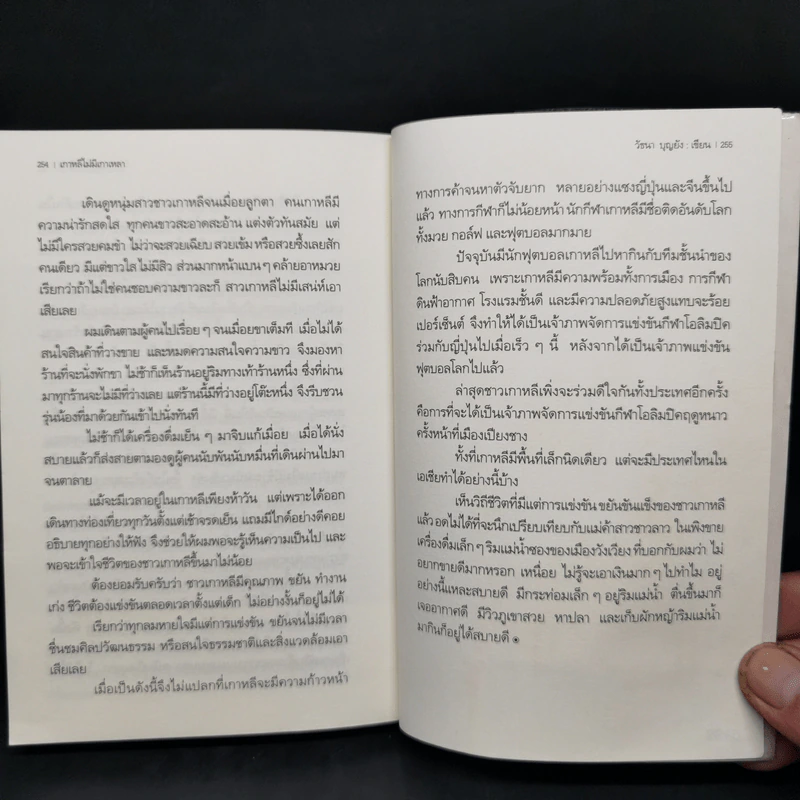 254 | เกาหลีไม่มีเกาเหลา
เดินดูหนุ่มสาวชาวเกาหลีจนเมื่อยลูกตา คนเกาหลีมี
ความน่ารักสดใส ทุกคนขาวสะอาดสะอ้าน แต่งตัวทันสมัย แต่
ไม่มีใครสวยคมขำ ไม่ว่าจะสวยเฉียบ สวยเข้ม หรือสวยซึ้งเลยสัก
คนเดียว มีแต่ขาวใส ไม่มีสิว ส่วนมากหน้าแบนๆ คล้ายอาหมวย
เรียกว่าถ้าไม่ใช่คนชอบความขาวละก็ สาวเกาหลีไม่มีเสน่ห์เอา
เสียเลย
ผมเดินตามผู้คนไปเรื่อยๆ จนเมื่อยขาเต็มที เมื่อไม่ได้
สนใจสินค้าที่วางขาย และหมดความสนใจความขาว จึงมองหา
ร้านที่จะนั่งพักขา ไม่ช้าก็เห็นร้านอยู่ริมทางเท้าร้านหนึ่ง ซึ่งที่ผ่าน
มาทุกร้านจะไม่มีที่ว่างเลย แต่ร้านนี้มีที่ว่างอยู่โต๊ะหนึ่ง จึงรีบชวน
รุ่นน้องที่มาด้วยกันเข้าไปนั่งทันที
ไม่ช้าก็ได้เครื่องดื่มเย็นๆ มาจิบแก้เมื่อย เมื่อได้นั่ง
สบายแล้วก็ส่งสายตามองดูผู้คนนับพันนับหมื่นที่เดินผ่านไปมา
จนตาลาย
แม้จะมีเวลาอยู่ในเกาหลีเพียงห้าวัน แต่เพราะได้ออก
เดินทางท่องเที่ยวทุกวันตั้งแต่เช้าจรดเย็น แถมมีไกด์อย่างดีคอย
อธิบายทุกอย่างให้ฟัง จึงช่วยให้ผมพอจะรู้เห็นความเป็นไป และ
พอจะเข้าใจชีวิตของชาวเกาหลีขึ้นมาไม่น้อย
ต้องยอมรับครับว่า ชาวเกาหลีมีคุณภาพ ขยัน ทำงาน
เก่ง ชีวิตต้องแข่งขันตลอดเวลาตั้งแต่เด็ก ไม่อย่างงั้นก็อยู่ไม่ได้
เรียกว่าทุกลมหายใจมีแต่การแข่งขัน ขยันจนไม่มีเวลา
ชื่นชมศิลปวัฒนธรรม หรือสนใจธรรมชาติและสิ่งแวดล้อมเอา
เสียเลย
เมื่อเป็นดังนี้จึงไม่แปลกที่เกาหลีจะมีความก้าวหน้า
วัธนา บุญยัง : เขียน | 255
ทางการค้าจนหาตัวจับยาก หลายอย่างแซงญี่ปุ่นและจีนขึ้นไป
แล้ว ทางการกีฬาก็ไม่น้อยหน้า นักกีฬาเกาหลีมีชื่อติดอันดับโลก
ทั้งมวย กอล์ฟ และฟุตบอลมากมาย
ปัจจุบันมีนักฟุตบอลเกาหลีไปหากินกับทีมชั้นนำของ
โลกนับสิบคน เพราะเกาหลีมีความพร้อมทั้งการเมือง การกีฬา
ดินฟ้าอากาศ โรงแรมชั้นดี และมีความปลอดภัยสูงแทบจะร้อย
เปอร์เซ็นต์ จึงทำให้ได้เป็นเจ้าภาพจัดการแข่งขันกีฬาโอลิมปิค
ร่วมกับญี่ปุ่นไปเมื่อเร็ว ๆ นี้ หลังจากได้เป็นเจ้าภาพแข่งขัน
ฟุตบอลโลกไปแล้ว
ล่าสุดชาวเกาหลีเพิ่งจะร่วมดีใจกันทั้งประเทศอีกครั้ง
คือการที่จะได้เป็นเจ้าภาพจัดการแข่งขันกีฬาโอลิมปิคฤดูหนาว
ครั้งหน้าที่เมืองเปียงชาง
ทั้งที่เกาหลีมีพื้นที่เล็กนิดเดียว แต่จะมีประเทศไหนใน
เอเชียทำได้อย่างนี้บ้าง
เห็นวิถีชีวิตที่มีแต่การแข่งขัน ขยันขันแข็งของชาวเกาหลี
แล้วอดไม่ได้ที่จะนึกเปรียบเทียบกับแม่ค้าสาวชาวลาว ในเพิงขาย
เครื่องดื่มเล็กๆ ริมแม่น้ำซองของเมืองวังเวียง ที่บอกกับผมว่า ไม่
อยากขายดีมากหรอก เหนื่อย ไม่รู้จะเอาเงินมากๆ ไปทำไม อยู่
อย่างนี้แหละสบายดี มีกระท่อมเล็กๆ อยู่ริมแม่น้ำ ตื่นขึ้นมาก็
เจออากาศดี มีวิวภูเขาสวย หาปลา และเก็บผักหญ้าริมแม่น้ำ
มากินก็อยู่ได้สบายดี